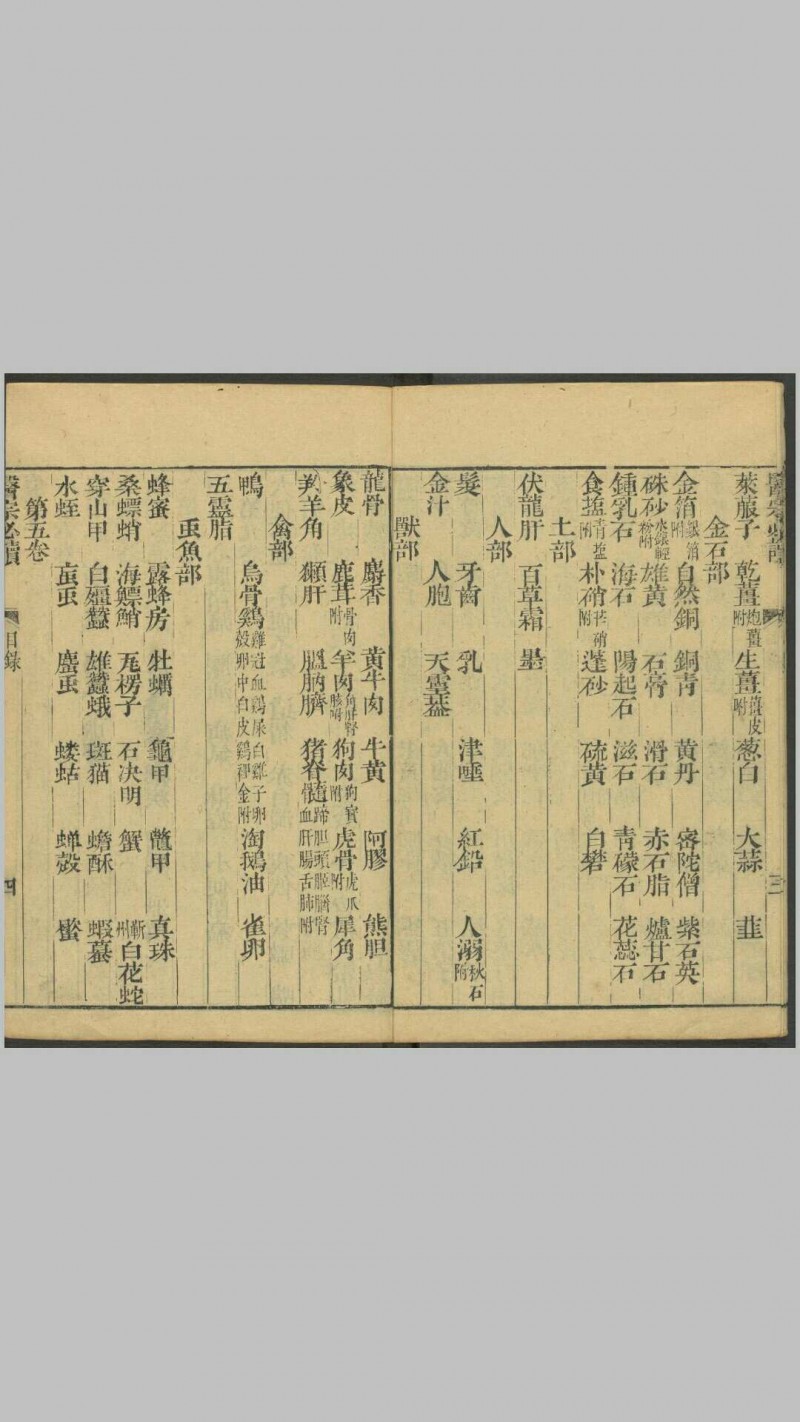 萊菔子 乾薑炮薑附 生薑薑皮附 葱白 大蒜 韮
金石部
金箔銀箔附 自然銅 銅青 黃丹 密陀僧 紫石英
硃砂水銀輕粉附 雄黃 石膏 滑石 赤石脂 爐甘石
鍾乳石 海石 陽起石 滋石 靑礞石 花蕊石
食鹽青鹽附 朴硝芒硝附 蓬砂 硫黃 白礬
土部
伏龍肝 百草霜 墨
人部
髮 牙齒 乳 津唾 紅鉛 人溺秋石附
金汁 人胞 天靈蓋
獸部
龍骨 麝香 黃牛肉 牛黃 阿膠 熊胆
象皮 鹿茸骨肉附 羊肉 狗肉狗寶附 虎骨虎爪附 犀角
羚羊角 獺肝 膃肭臍 猪脊髓
禽部
鴨 烏骨鷄 淘鵝油 雀卵
五靈脂
虫魚部
蜂蜜 露蜂房 牡蠣 龜甲 鱉甲 真珠
桑螵蛸 海螵蛸 瓦楞子 石决明 蟹 蘄州白花蛇
穿山甲 白殭蠶 雄蠶蛾 斑猫 蟾酥 蝦蟇
水蛭 䖟虫 䗪虫 蝼蛄 蝉殼 蝎
第五卷
醫宗必讀 目錄 四